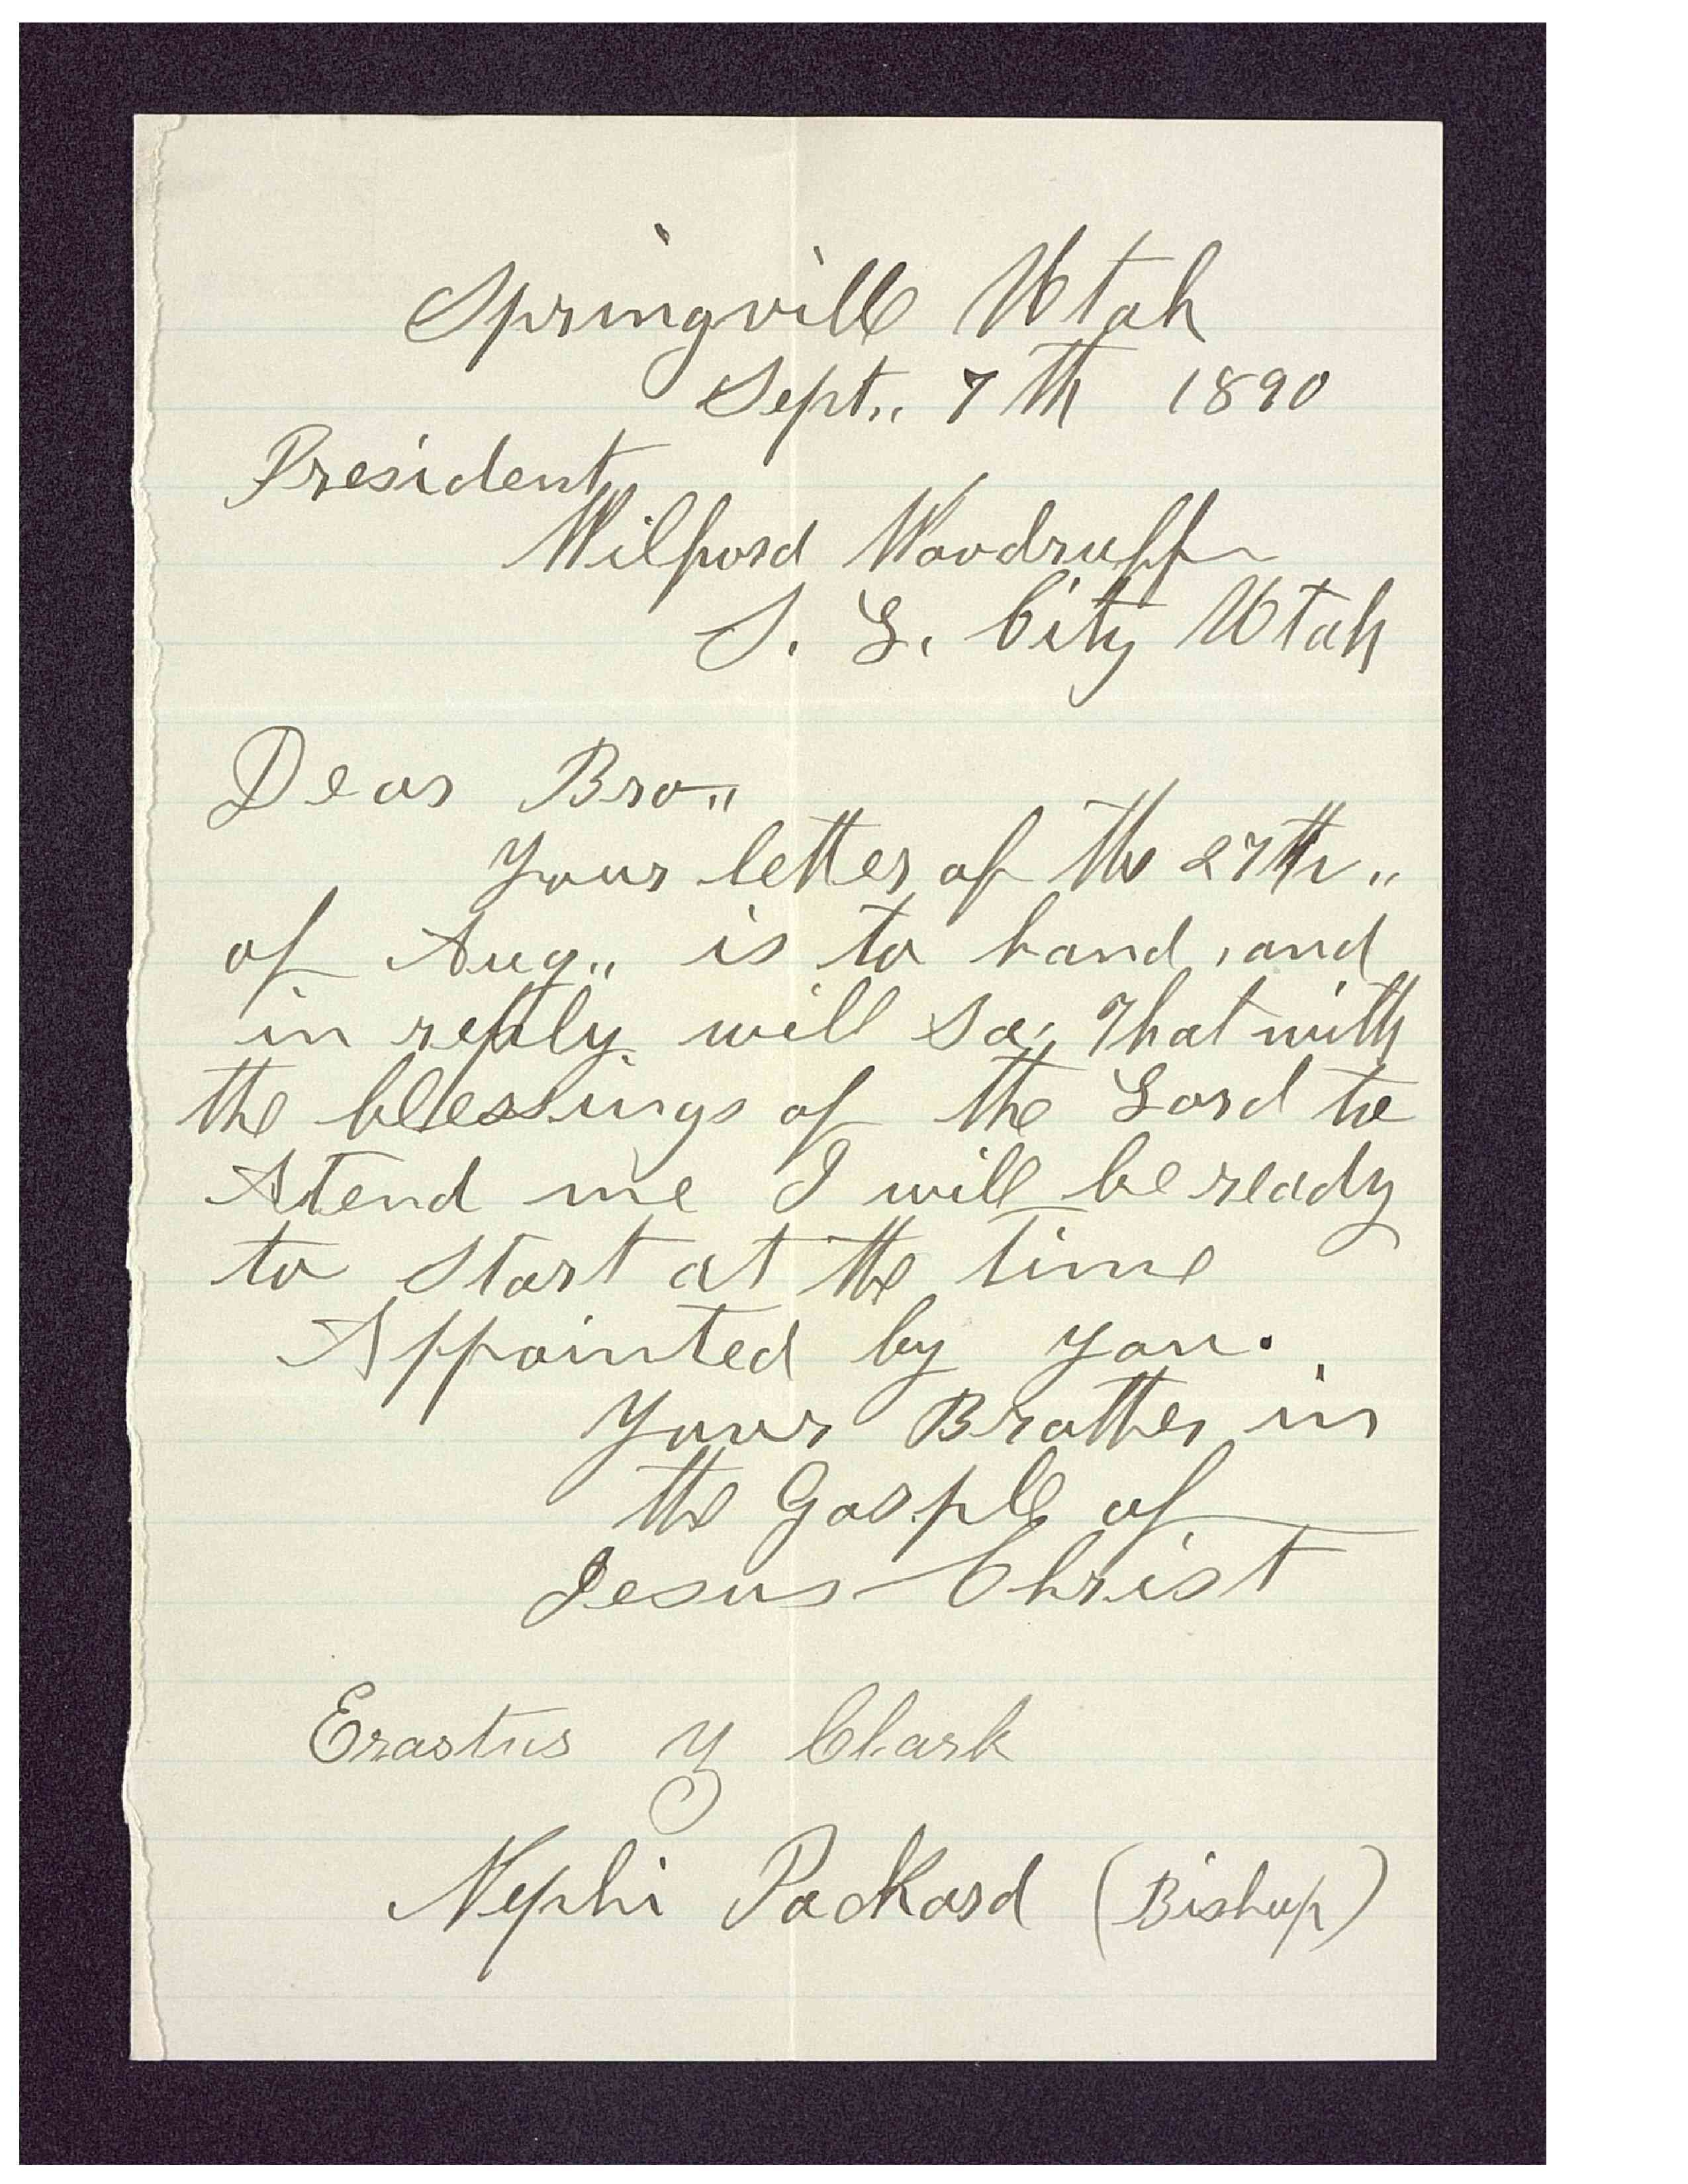 Springvill Utah
Sept,, 7th 1890
President
Wilford Woodruff
S. L. City Utah
Dear Bro,,
Your letter of the 27th,,
of Aug,, is to hand, and
in reply will sa, That with
the blessings of the Lord to
Atend me I will be ready
to Start at the time
Appointed by you.
Your Brother in
the Gosple of
Jesus Christ
Erastus Y Clark
Nephi Packard (Bishop)